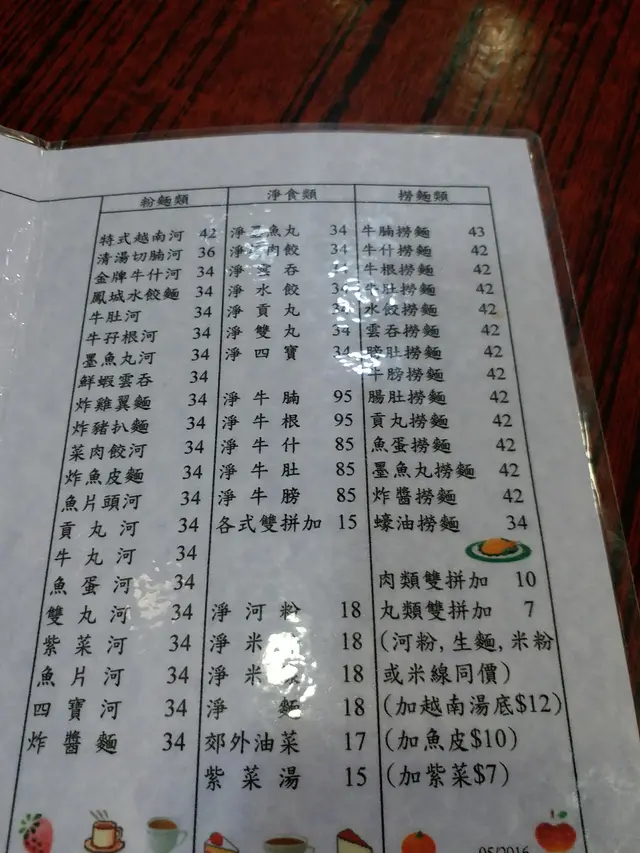 粉麵類
特式越南河 42
清湯切腩河 36
金牌牛什河 34
鳳城水餃麵 34
牛肚河 34
牛孖根河 34
墨魚丸河 34
鮮蝦雲吞 34
炸雞翼麵 34
炸豬扒麵 34
菜肉餃河 34
炸魚皮麵 34
魚片頭河 34
貢丸河 34
牛丸河 34
魚蛋河 34
雙丸河 34
紫菜河 34
魚片河 34
四寶河 34
炸醬麵 34
淨食類
淨墨魚丸 34
淨菜肉餃 34
淨雲吞 34
淨水餃 34
淨貢丸 34
淨雙丸 34
淨四寶 34
淨牛腩 95
淨牛根 95
淨牛什 85
淨牛肚 85
淨牛膀 85
各式雙拼加 15
淨河粉 18
淨米 18
淨米 18
淨麵 18
郊外油菜 17
紫菜湯 15
撈麵類
牛腩撈麵 43
牛什撈麵 42
牛根撈麵 42
牛肚撈麵 42
水餃撈麵 42
雲吞撈麵 42
膀肚撈麵 42
牛膀撈麵 42
腸肚撈麵 42
貢丸撈麵 42
魚蛋撈麵 42
墨魚丸撈麵 42
炸醬撈麵 42
蠔油撈麵 34
肉類雙拼加 10
丸類雙拼加 7
(河粉,生麵,米粉
或米線同價)
(加越南湯底$12)
(加魚皮$10)
(加紫菜$7)
05/2016